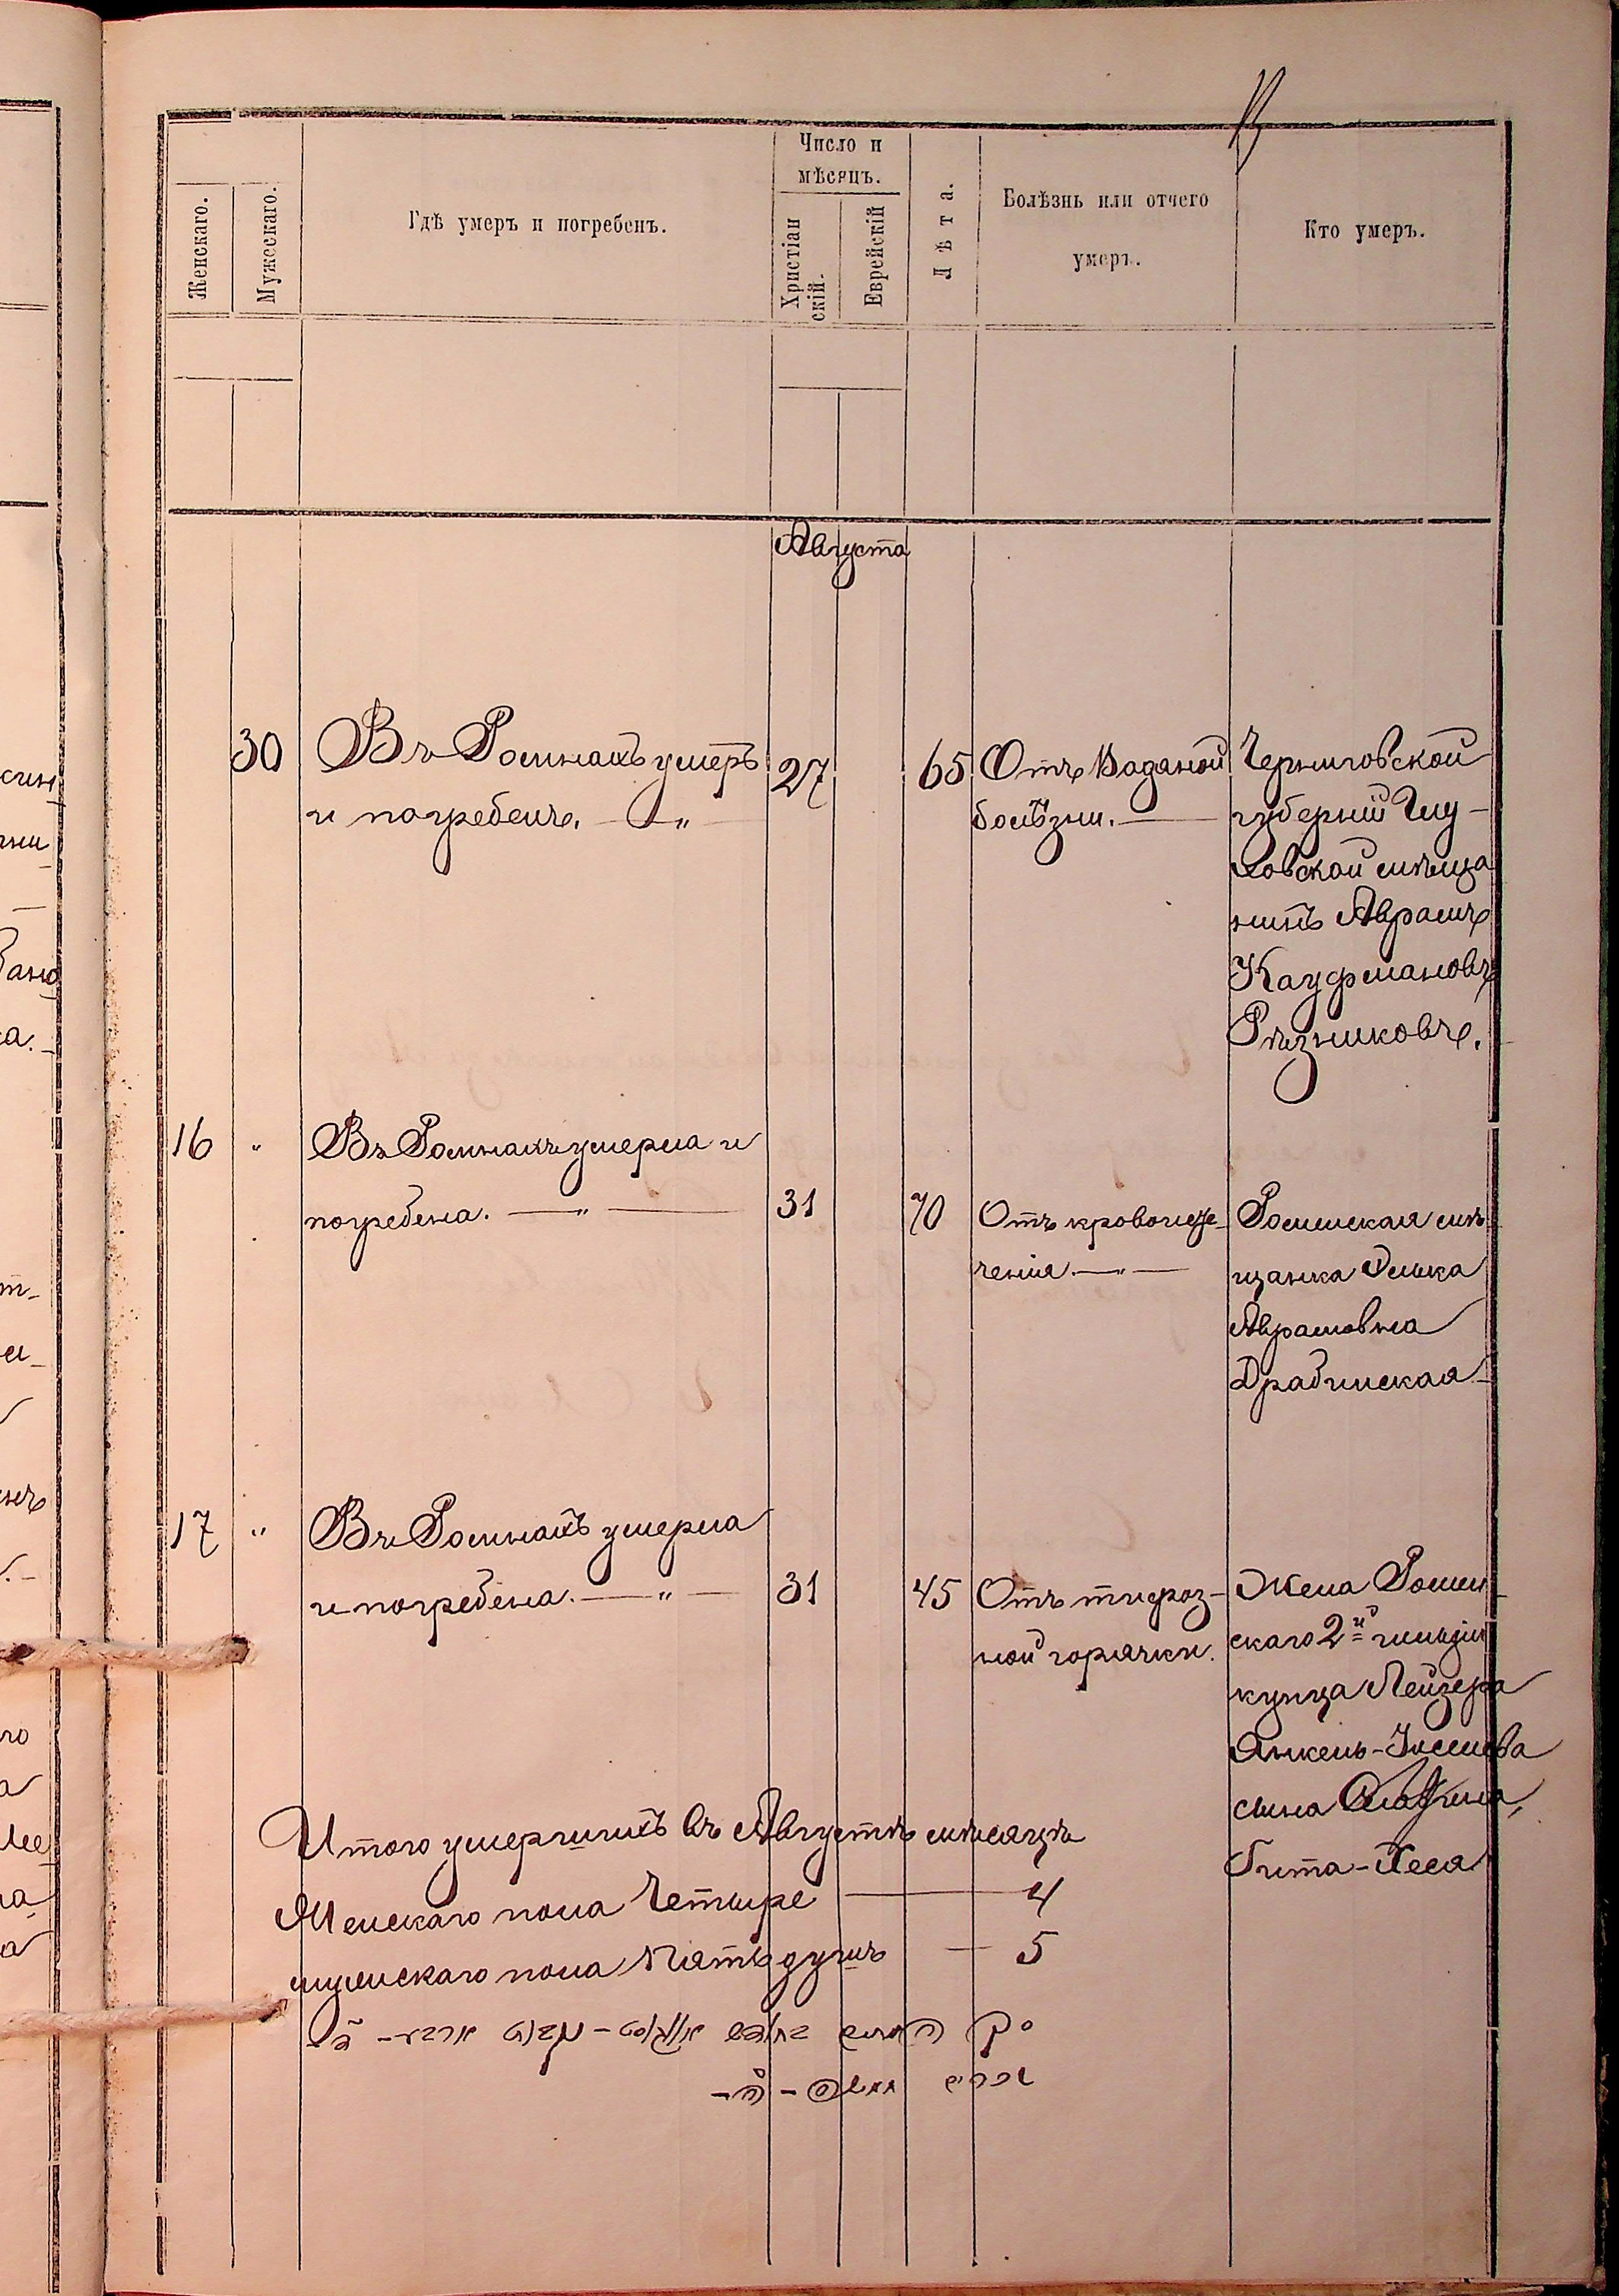 Женскаго.
Мужескаго.
Гдѣ умеръ и погребенъ.
Число и
мѣсяцъ.
Христіан
скій.
Еврейскій
Лѣта.
Болѣзнь или отчего
умеръ.
Кто умеръ.
Августа
30
Въ Ромнахъ умеръ
и погребенъ. — „ —
27
65
Отъ Водяной
болѣзни. —
Черниговской
губерніи Глу-
ховской мѣща
нинъ Аврамъ
Кауфмановъ
Рѣзниковъ.
16 „
Въ Ромнахъ умерла и
погребена. — „ —
31
70
Отъ кровоте-
ченія. — „ —
Роменская мѣ
щанка Элька
Аврамовна
Драбинская
17 „
Въ Ромнахъ умерла
и погребена. — „ —
31
45
Отъ тифоз-
ной горячки.
Жена Ромен-
скаго 2й гильдіи
купца Лейзера
Янкель-Іоселева
сына
Гита-Песа
Итого умершихъ въ Августѣ мѣсяцѣ
Женскаго пола Четыре — 4
мужескаго пола Пять душъ — 5